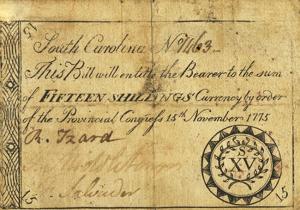 15
South Carolina No
This Bill will entitle the Bearer to the sum
of FIFTEEN SHILLINGS Currency by order
of the Provincial Congress 15th November 1775
R. Izard
XV
15
15